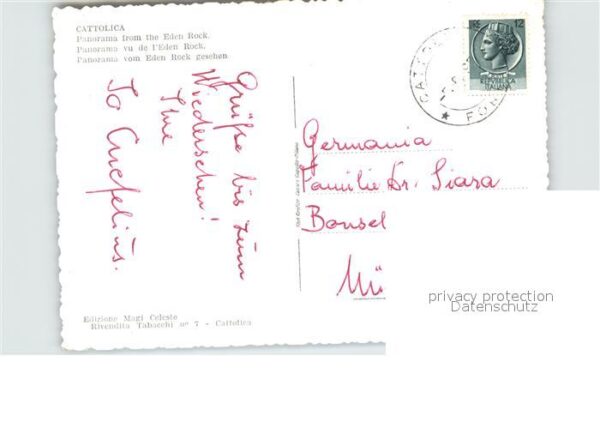 CATTOLICA
Panorama from the Eden Rock.
Panorama vu de l'Eden Rock.
Panorama vom Eden Rock gesehen
Grüße bis zum
Wiedersehen!
Ihre
12
CATTO
FOR
Germania
Familie Dr. Siara
Bonsel
Mü
privacy protection
Datenschutz
Edizione Magi Celeste
Rivendita Tabacchi nº 7 - Cattolica